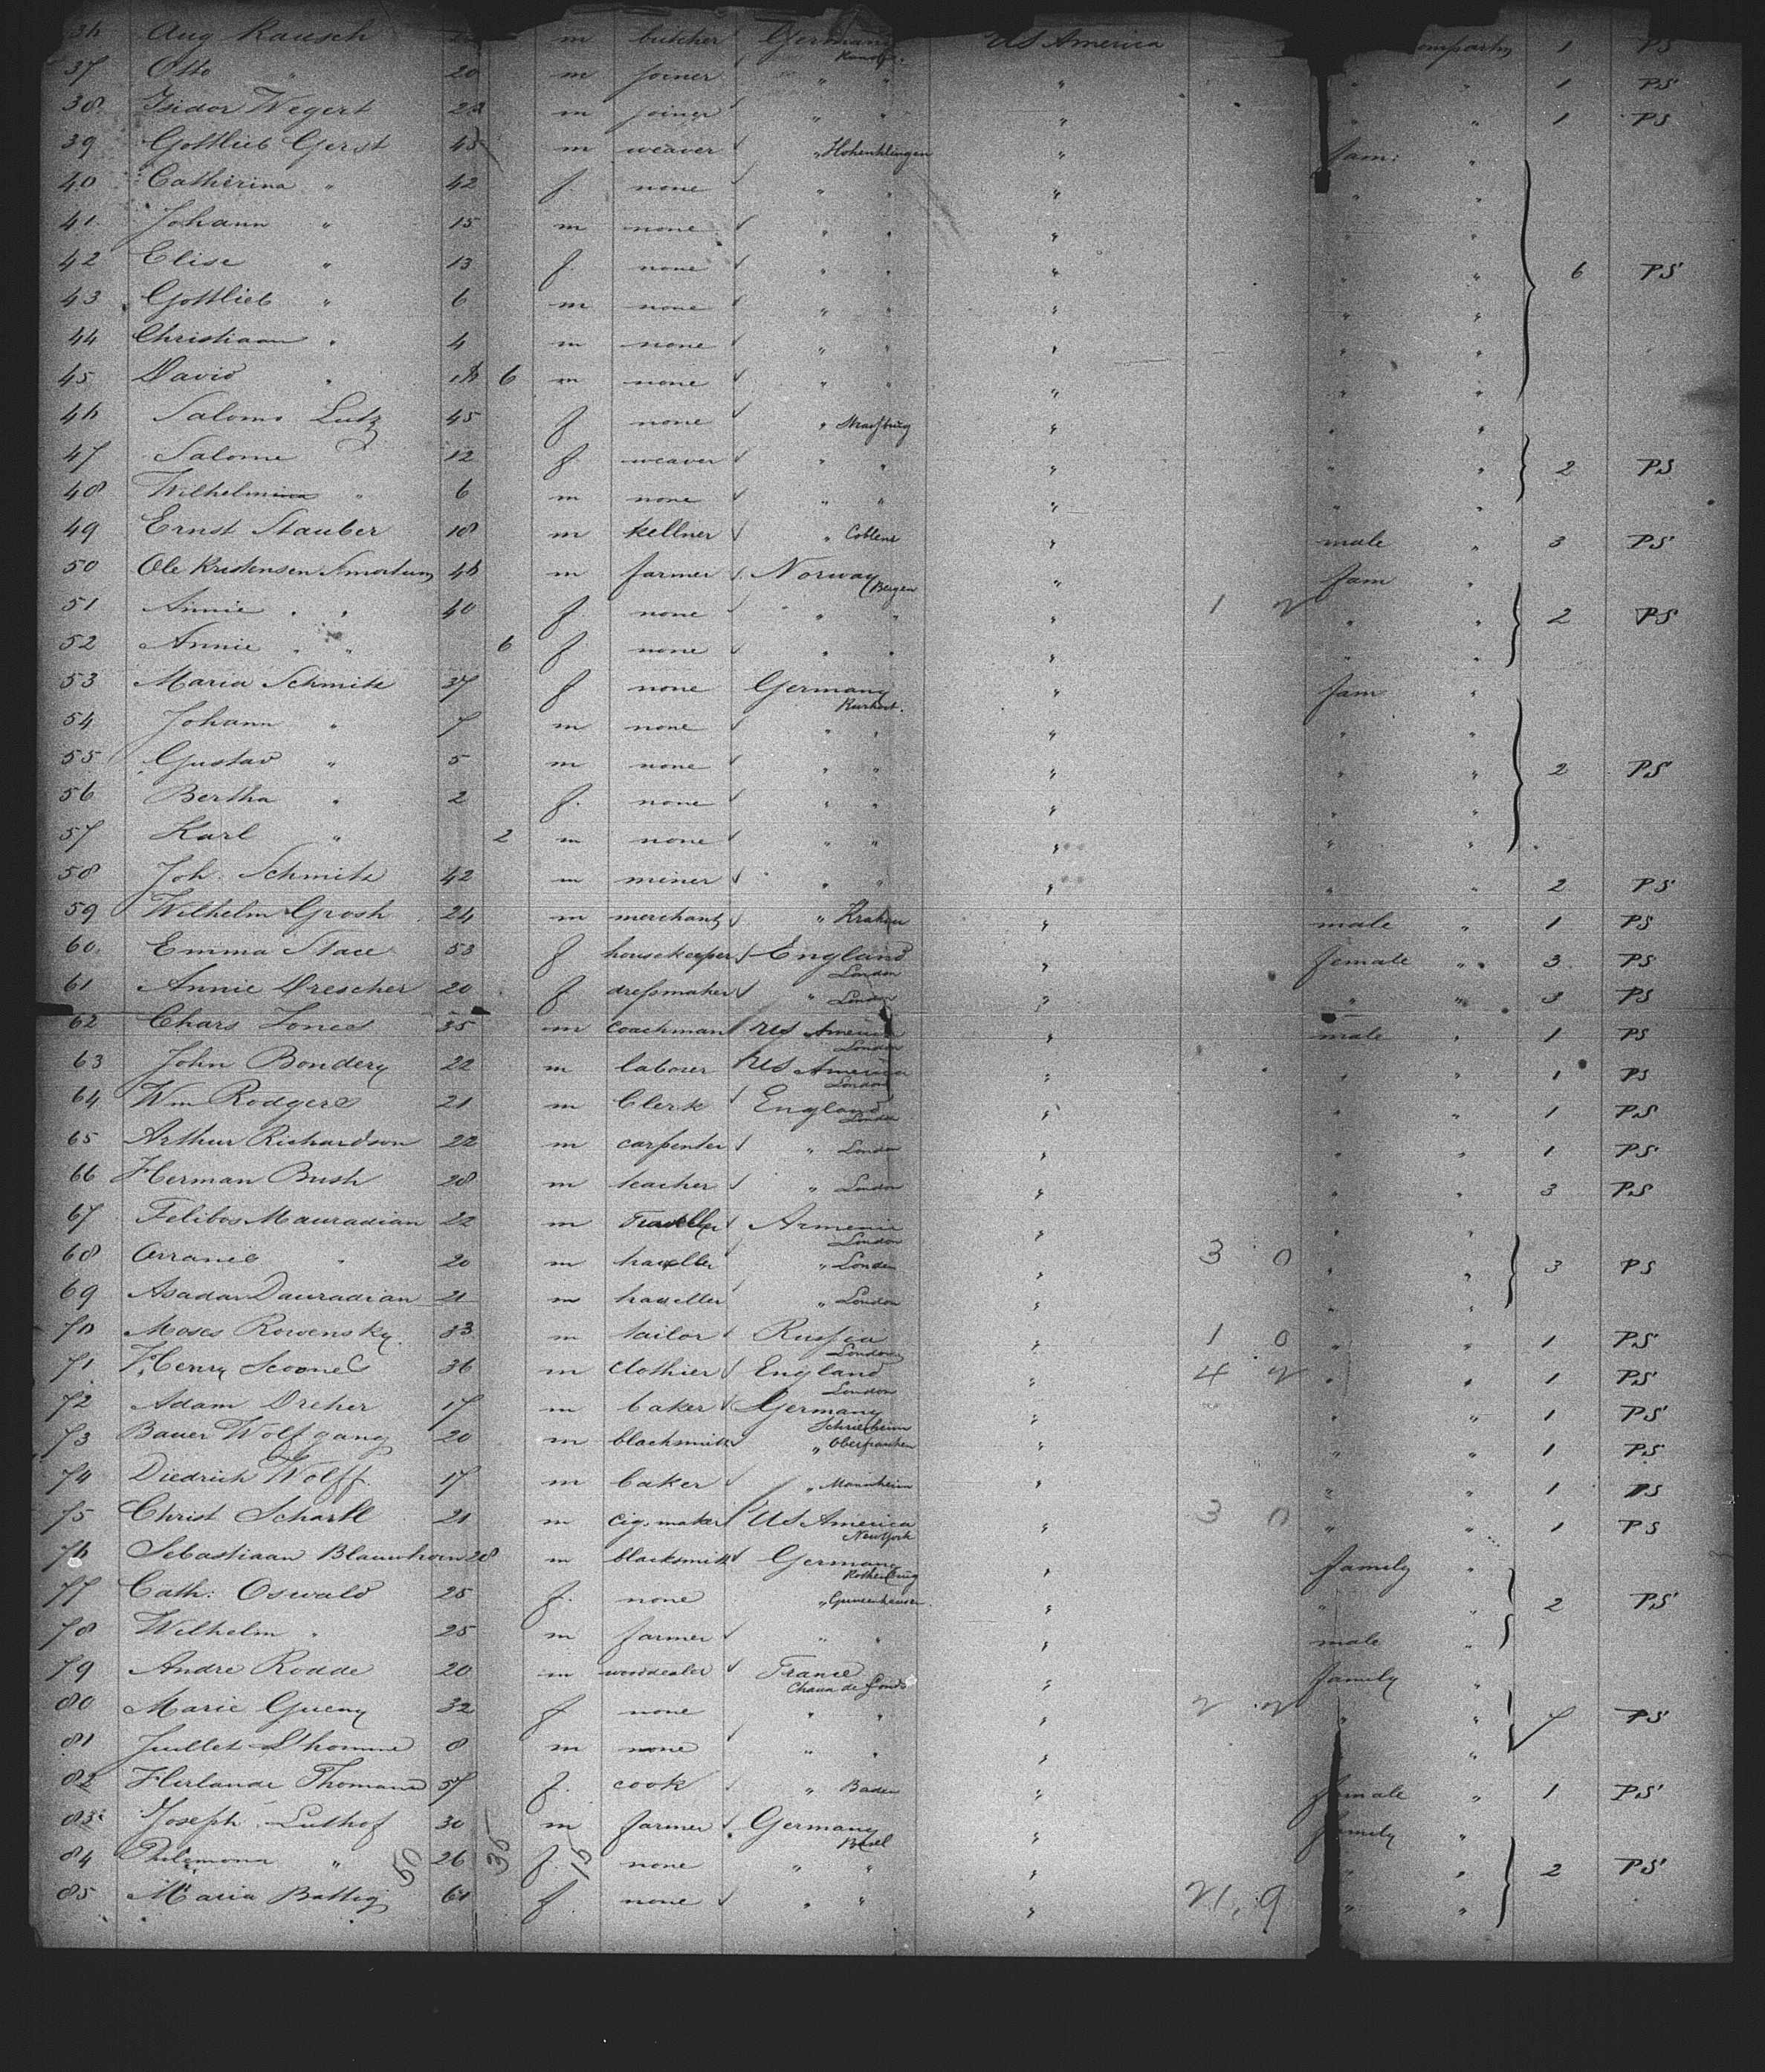 36 Aug Rausch m butcher Germany US America 1 PS
37 Otto " 20 m joiner " " " " " 1 PS
38 Isidor Wegert m joiner " " " " " 1 PS
39 Gottlieb Gerst m weaver " Hohenklingen " fam: "
40 Catherina " 42 f. none " " " " "
41 Johann " 15 m none " " " " "
42 Elise " 13 f. none " " " " " 6 PS
43 Gottlieb " 6 m none " " " " "
44 Christiaan " 4 m none " " " " "
45 David " 6 m none " " " " "
46 Salome Lutz 45 f none " Strassburg " " "
47 Salome 12 f weaver " " " " " 2 PS
48 Wilhelm " 6 m none " " " " "
49 Ernst Stauber 18 m kellner " Coblenz " male " 3 PS
50 Ole Kristensen 46 m farmer Norway Bergen " fam "
51 Annie " " 40 f none " " " 1 2 " " 2 PS
52 Annie " " 6 f none " " " " "
53 Maria Schmitz 37 f none Germany " fam "
54 Johann " 7 m none " " " " "
55 Gustav " 5 m none " " " " " 2 PS
56 Bertha " 2 f. none " " " " "
57 Karl " 2 m none " " " " "
58 Joh. Schmitz 42 m miner " " " " " 2 PS
59 Wilhelm Grosh 24 m merchant " Krakau " male " 1 PS
60 Emma Stace 53 f housekeeper England London " female " 3 PS
61 Annie Drescher 20 f dressmaker " London " " " 3 PS
62 Chars Jones 35 m coachman US America London " male " 1 PS
63 John Bondery 22 m laborer US America London " " " 1 PS
64 Wm Rodgers 21 m Clerk England London " " " 1 PS
65 Arthur Richardson 22 m carpenter " London " " " 1 PS
66 Herman Bush 28 m teacher " London " " " 3 PS
67 Felibos Mauradian 22 m Traveller Armenia London " " "
68 " 20 m traveller " London " 3 0 " " 3 PS
69 Asadar Dauradian 21 m traveller " London " " "
70 Moses Rowensky 33 m tailor Russia London " 1 0 " " 1 PS
71 Henry Scoones 36 m clothier England London " 4 2 " " 1 PS
72 Adam Dreher 17 m baker Germany Schriesheim " " " 1 PS
73 Bauer Wolfgang 20 m blacksmith " Oberfranken " " " 1 PS
74 Diedrich Wolff 17 m baker " Mannheim " " " 1 PS
75 Christ Scharll 21 m cig. maker US America New York " 3 0 " " 1 PS
76 Sebastiaan Blauwhorn 28 m blacksmith Germany Rothenburg " family "
77 Cath: Oswald 25 f. none " Gunzenhausen " " " 2 PS
78 Wilhelm " 25 m farmer " " " male "
79 Andre Rodde 20 m wooddealer France Chaux de fonds " family "
80 Marie Gueny 32 f none " " " 2 2 " " 7 PS
81 Juillet L'homme 8 m none " " " " "
82 Thomann 57 f. cook " Baden " female " 1 PS
83 Joseph Luthof 30 m farmer Germany Basel " family "
84 Philomena " 26 f. none " " " " " 2 PS
85 Maria Battig 61 f none " " " " "
50 35 15 21, 9